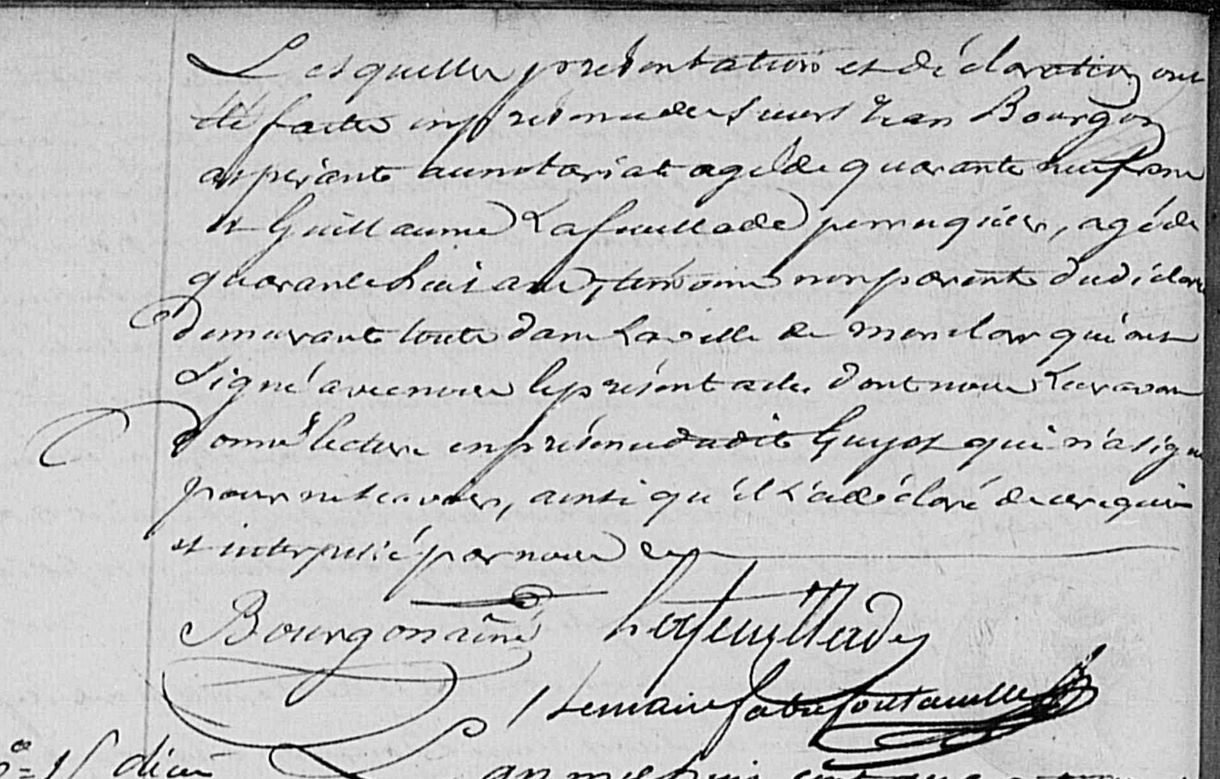 Lesquelles présentation et déclaration ont
été faites en présence de sieurs Jean Bourgon
aspirant au notariat agé de quarante neuf ans
et Guillaume Lafeuillade perruquier, agé de
quarante huit ans, témoins non parents dudit déclara
demeurants touts dans la ville de monclar qui ont
Signé avec nous le présent acte dont nous leur avons
donné lecture en présence dudit Guyot qui n'a signé
pour ne scavoir, ainsi qu'il l'a déclaré de ce requis
et interpellé par nous
Bourgon ainé Lafeuillade
Le maire fabre fontanille
15 dicu
L'an mil huit cent